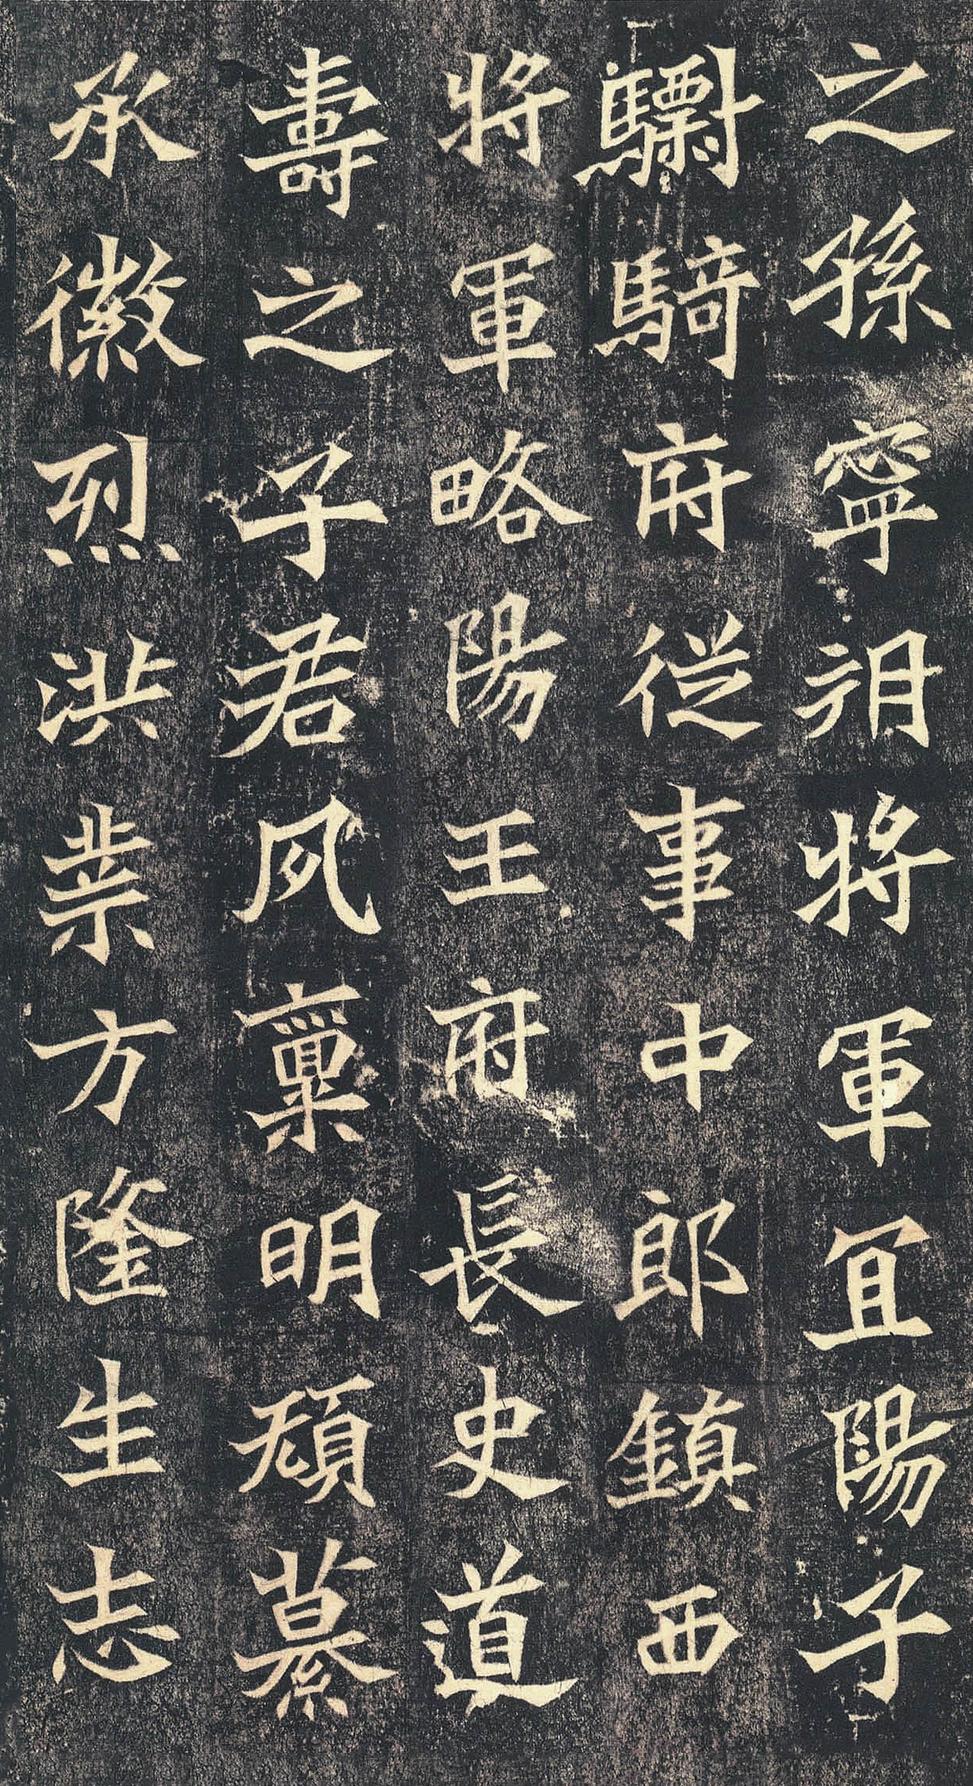 之孫寧朔將軍宜陽子
驃騎府從事中郎鎮西
將軍略陽王府長史道
壽之子君夙稟明纂
承徽烈洪業方隆生志